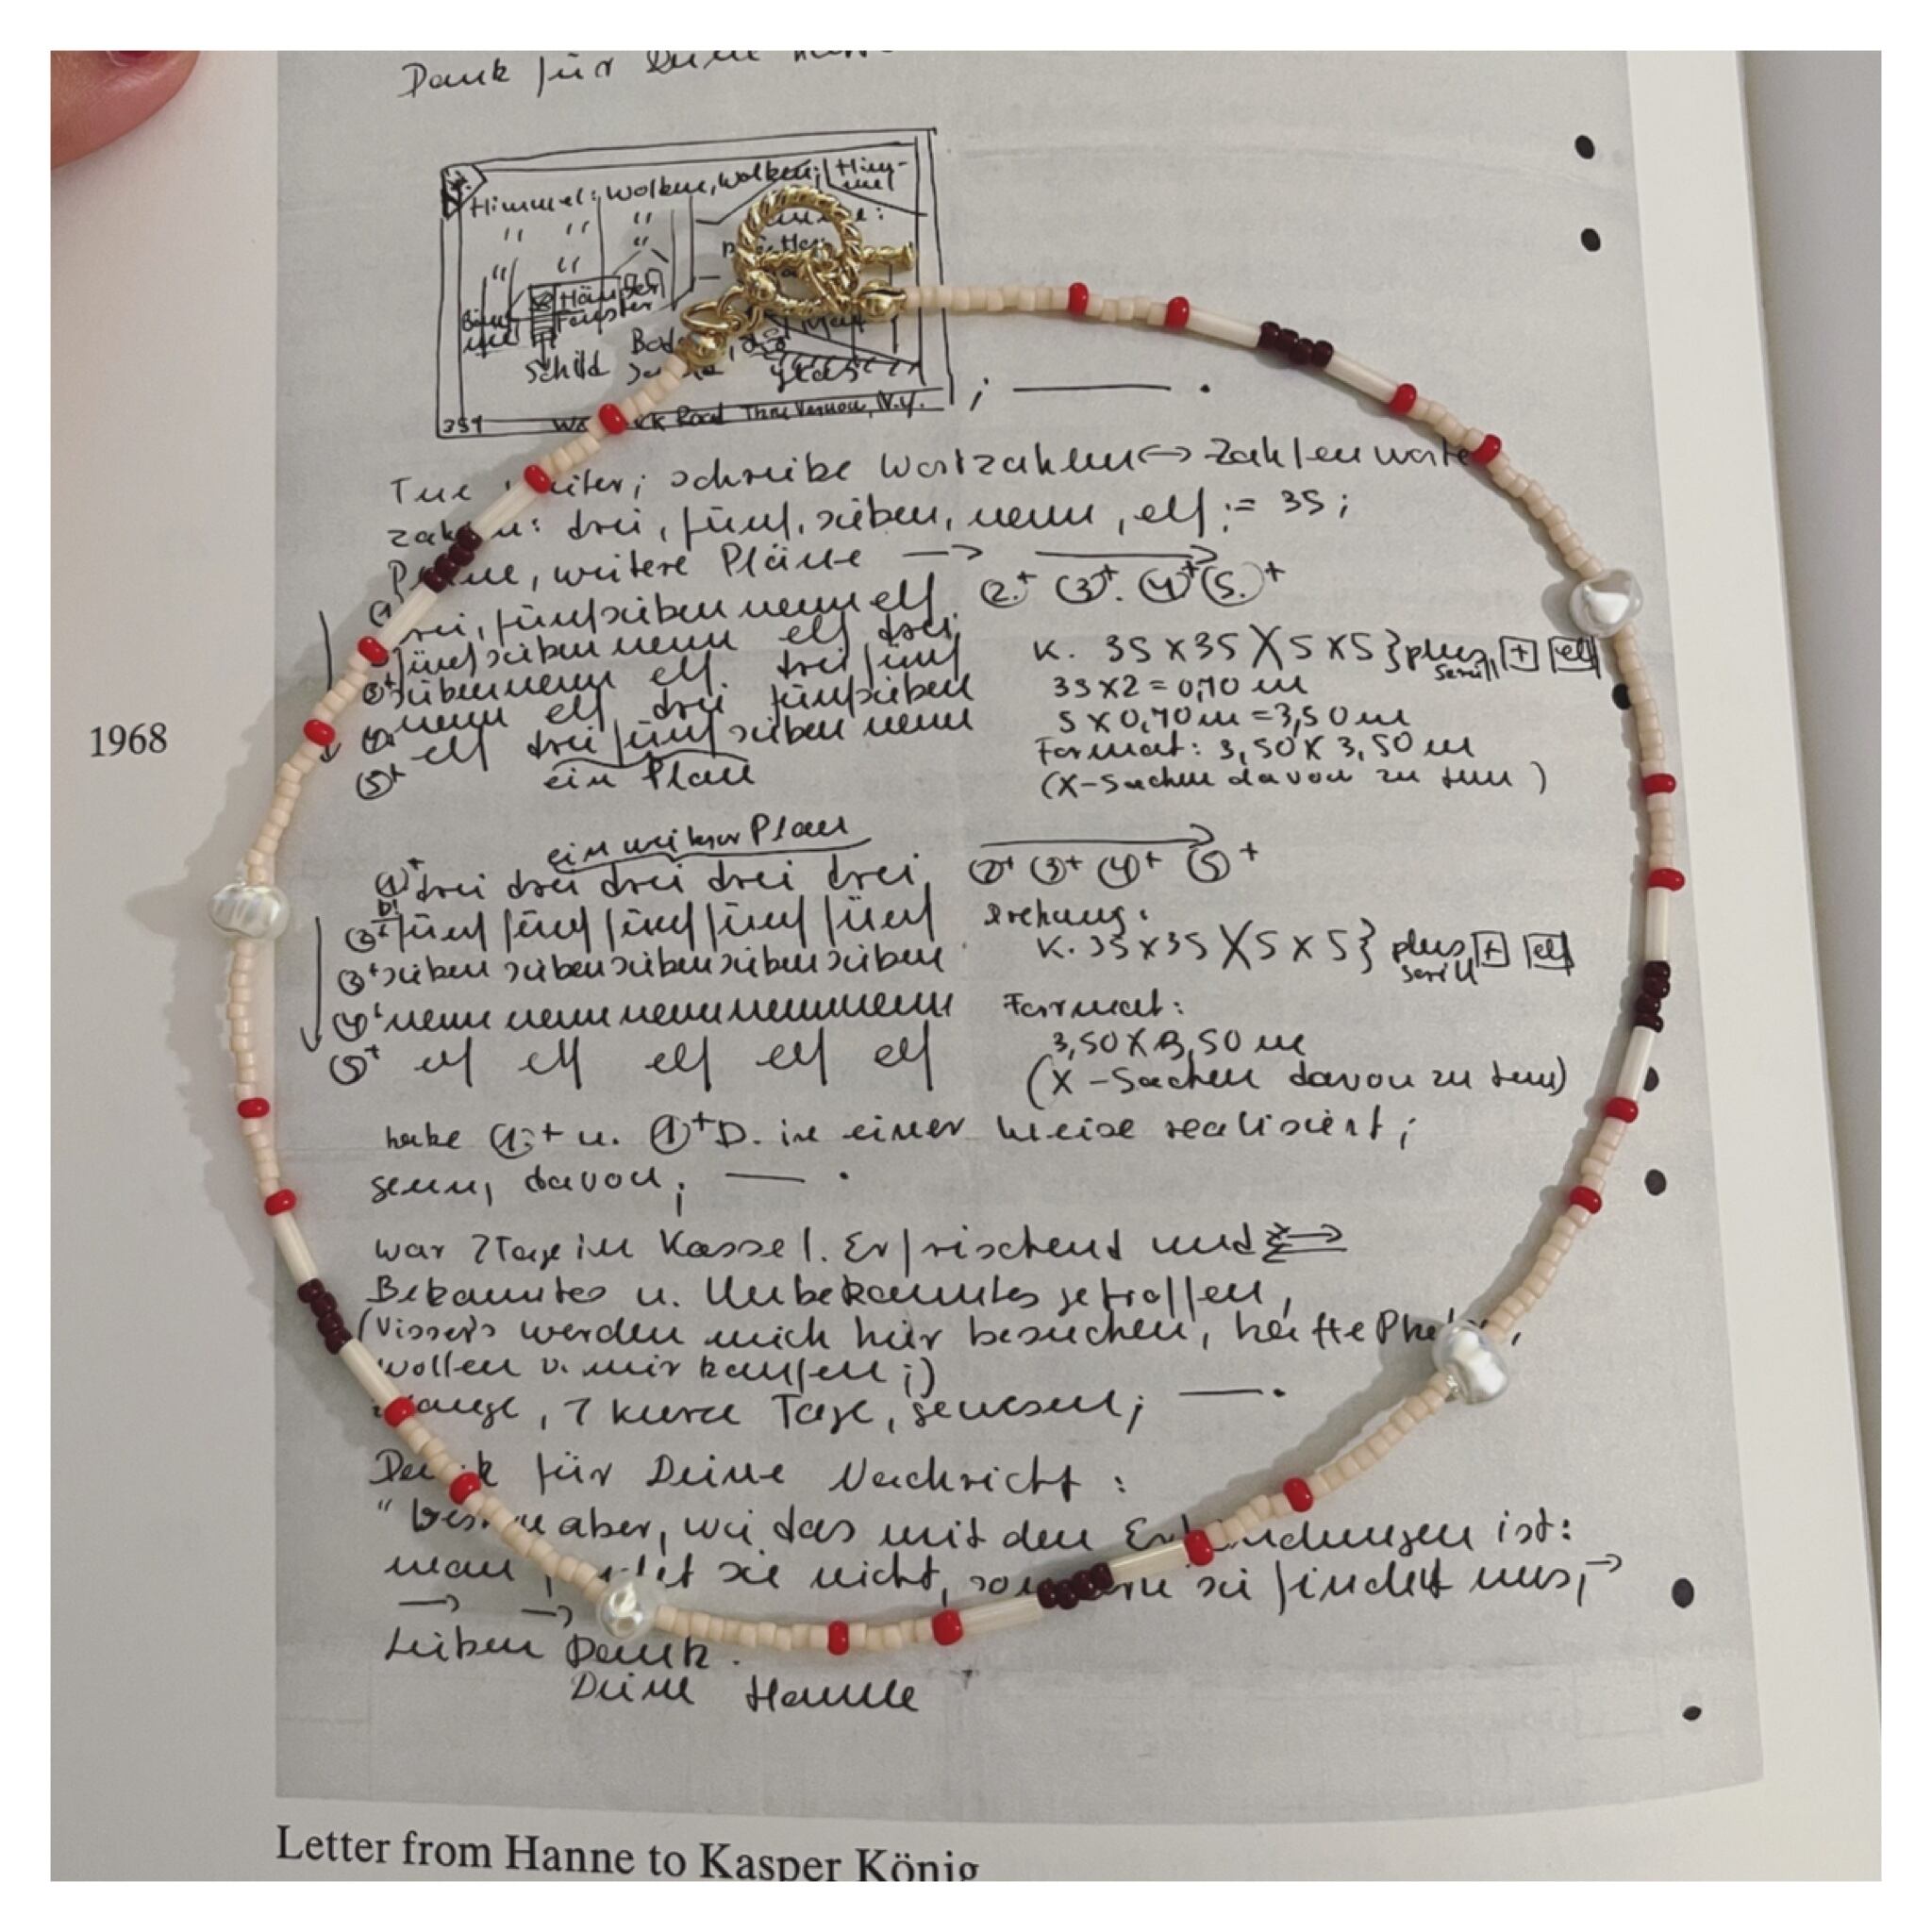 Dank für Deine
Himmel: Wolken, Wolken; Him-
mel
" " "
" " "
Häuser
Fenster
Schild
351 Road Thru Vernon, N.Y.
; ——— .
Tue schreibe Wortzahlen <-> Zahlenworte
drei, fünf, sieben, neun, elf := 35;
weitere Pläne → 2.+ 3+. 4+ 5.+
fünf sieben neun elf
fünf sieben neun elf drei
3+ sieben neun elf. drei fünf
4. neun elf drei fünf sieben
5+ elf drei fünf sieben neun
ein Plan
K. 35 x 35 X 5 x 5 } plus + elf
35 x 2 = 0,70 m
5 x 0,70 m = 3,50 m
Format: 3,50 x 3,50 m
(X-Sachen davon zu tun)
1968
ein weiterer Plan
1+ drei drei drei drei drei 2+ 3+ 4+ 5+
fünf fünf fünf fünf fünf
3+ sieben sieben sieben sieben sieben
4+ neun neun neun neun neun
5+ elf elf elf elf elf
Drehung:
K. 35 x 35 X 5 x 5 } plus + elf
Format:
3,50 X 3,50 m
(X-Sachen davon zu tun)
habe 1.+ u. 1+ D. in einer Weise realisiert;
davon; —— .
war 7 Tage in Kassel. Erfrischend und
Bekanntes u. Unbekanntes getroffen,
(Vissers werden mich hier besuchen,
wollen v. mir kaufen;)
lange, 7 kurze Tage, gewesen; —— .
Dank für Deine Nachricht:
aber, wie das mit den Erfindungen ist:
man findet sie nicht, sondern sie findet uns, →
→ →
Lieben Dank.
Deine Hanne
Letter from Hanne to Kasper König